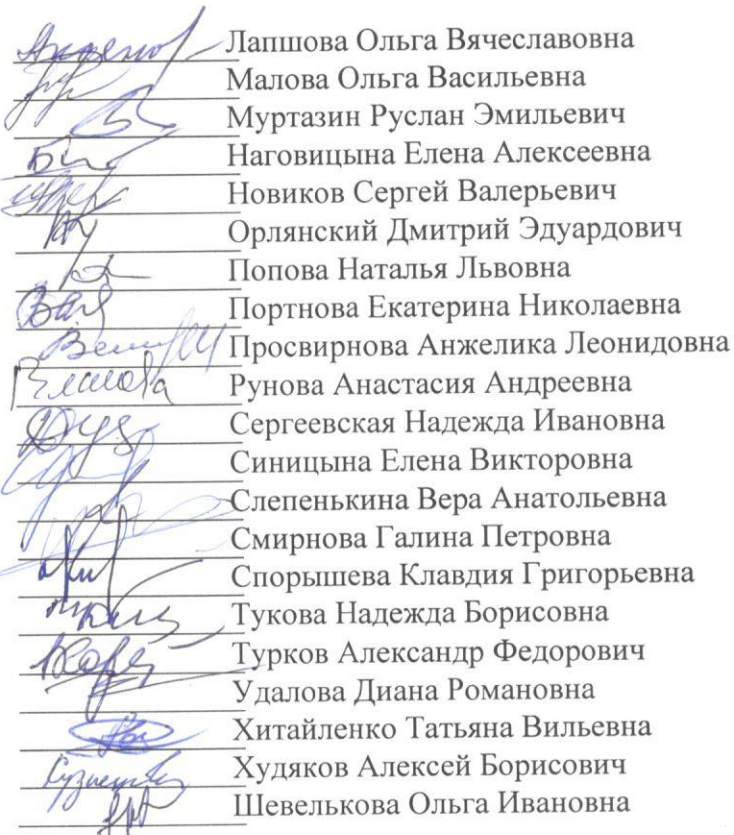 Лапшова Ольга Вячеславовна
Малова Ольга Васильевна
Муртазин Руслан Эмильевич
Наговицына Елена Алексеевна
Новиков Сергей Валерьевич
Орлянский Дмитрий Эдуардович
Попова Наталья Львовна
Портнова Екатерина Николаевна
Просвирнова Анжелика Леонидовна
Рунова Анастасия Андреевна
Сергеевская Надежда Ивановна
Синицына Елена Викторовна
Слепенькина Вера Анатольевна
Смирнова Галина Петровна
Спорышева Клавдия Григорьевна
Тукова Надежда Борисовна
Турков Александр Федорович
Удалова Диана Романовна
Хитайленко Татьяна Вильевна
Худяков Алексей Борисович
Шевелькова Ольга Ивановна